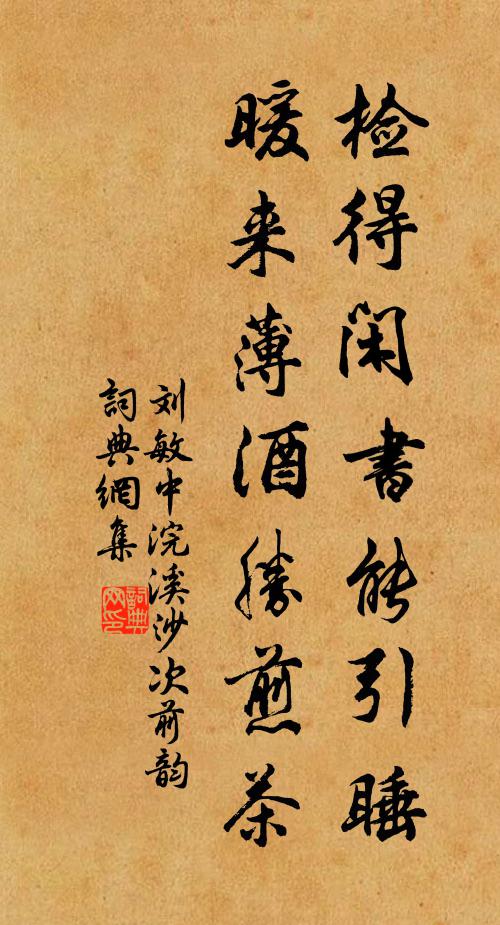 检得闲书能引睡
暖来薄酒勝煎茶
刘敏中浣溪沙次前韵
詞典網集
詞典网印